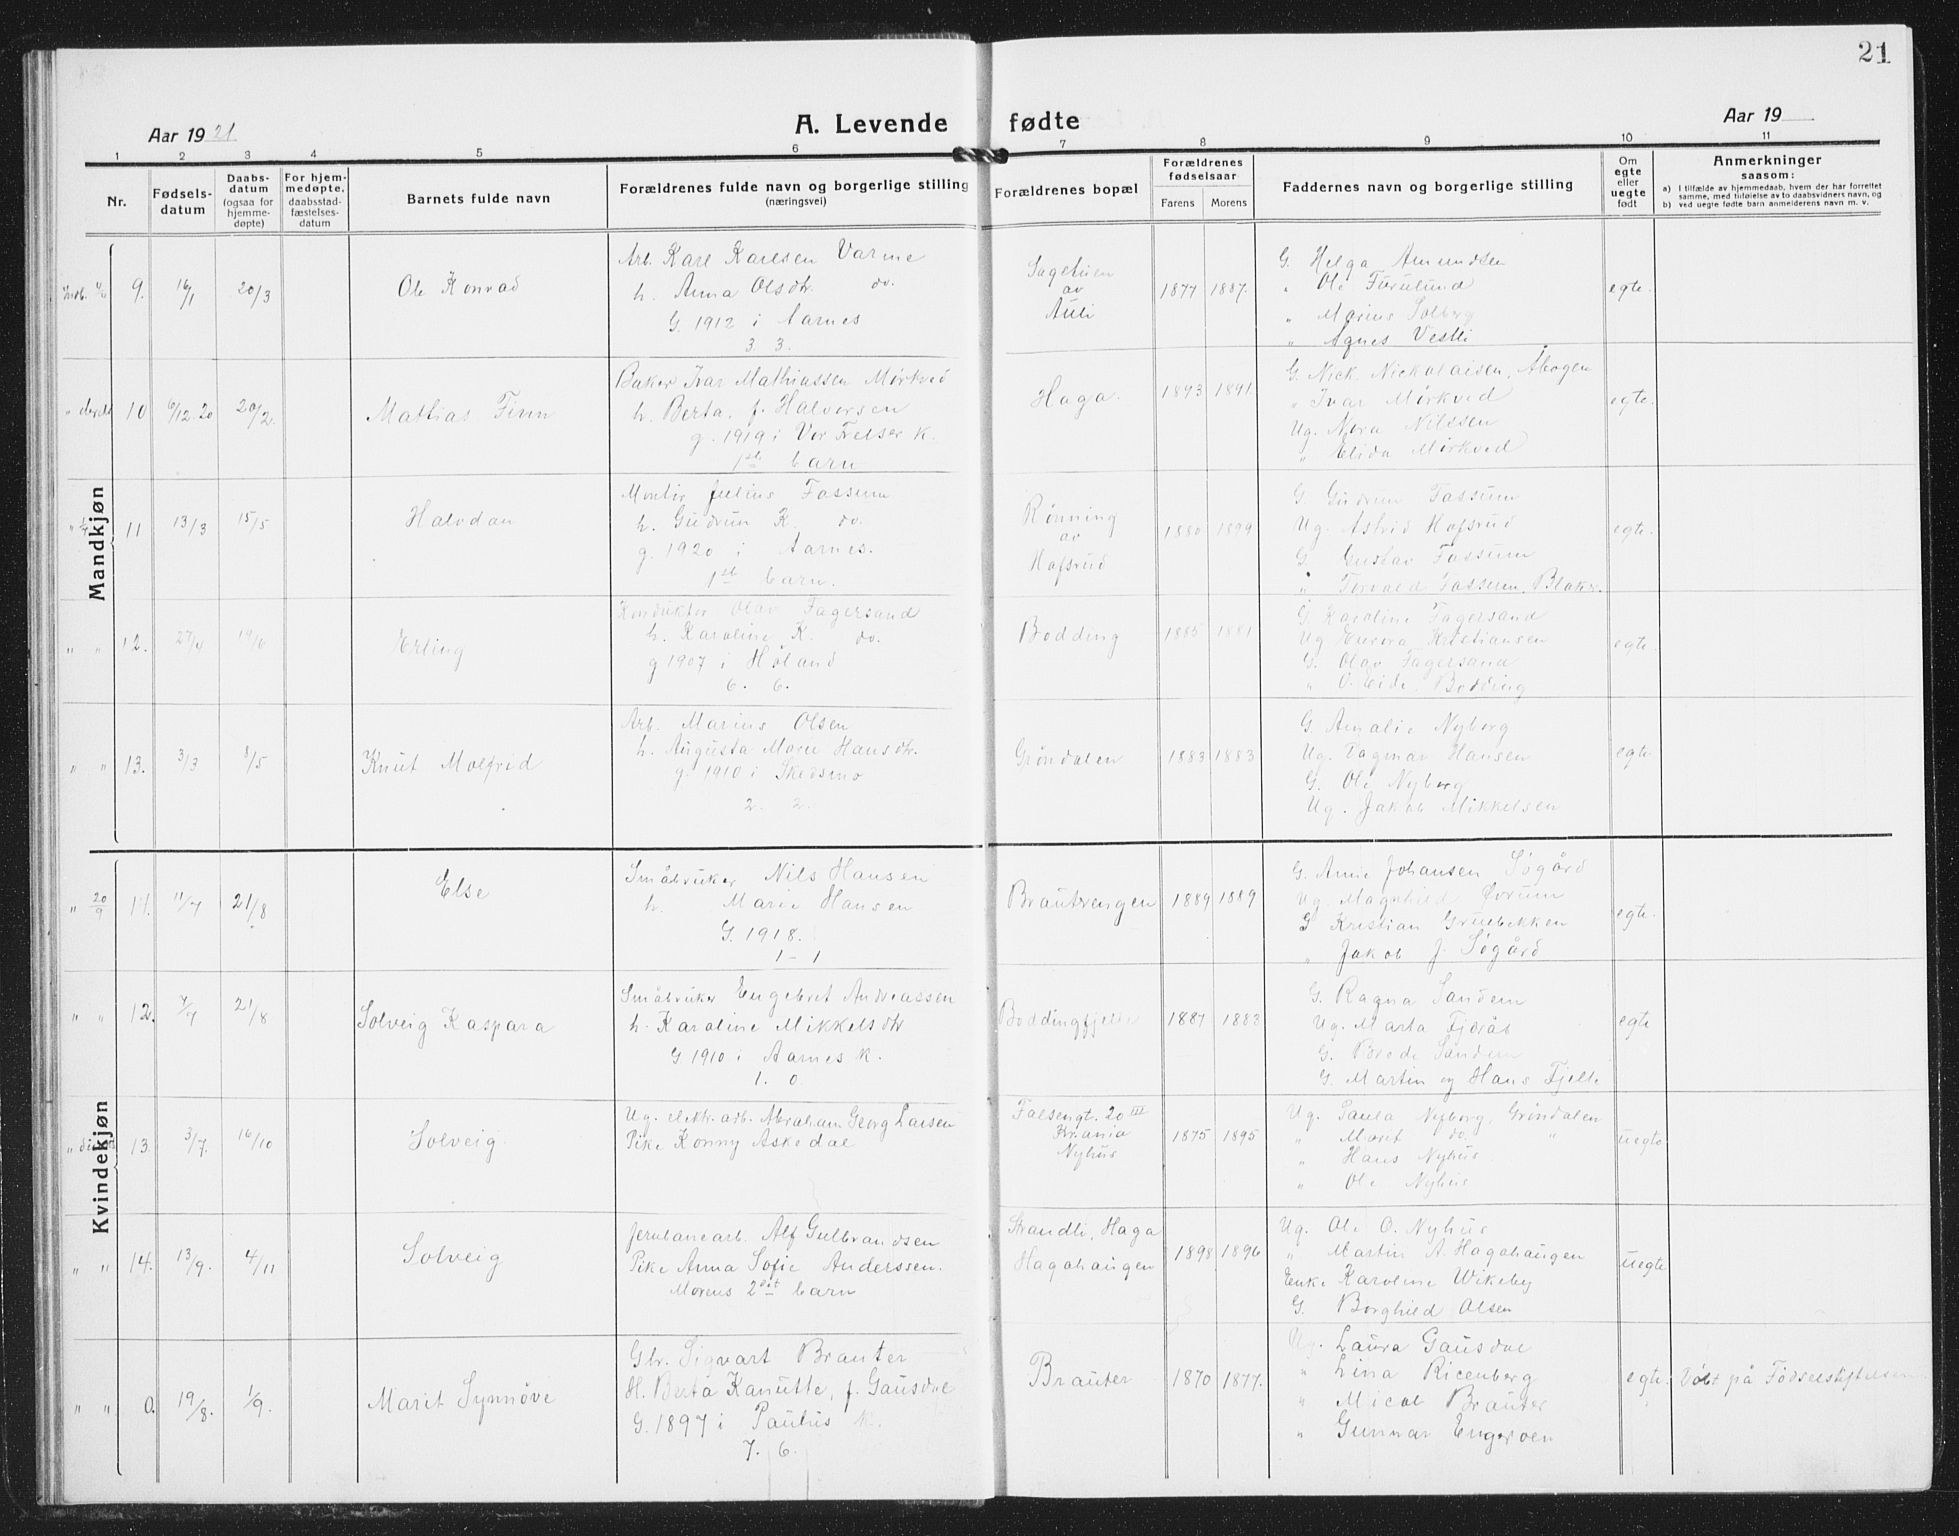 21
Aar 19 21.
A. Levende fødte
Aar 19
1 2 3 4 5 6 7 8 9 10 11
Nr.
Fødselsdatum
Daabsdatum (ogsaa for hjemmedøpte)
For hjemmedøpte, daabsstadfæstelsesdatum
Barnets fulde navn
Forældrenes fulde navn og borgerlige stilling (næringsvei)
Forældrenes bopæl
Forældrenes fødselsaar
Farens Morens
Faddernes navn og borgerlige stilling
Om egte eller uegte født
Anmerkninger saasom:
a) I tilfælde av hjemmedaab, hvem der har forrettet samme, med tilføielse av to daabsvidners navn, og
b) ved uegte fødte barn anmelderens navn m. v.
Mandkjøn
9. 16/1 20/3 Ole Konrad
Arb. Karl Karlsen Varme
h. Anna Olsdtr. do.
G. 1912 i Aarnes
3. 3.
Sagstuen
av
Auli
1877 1887.
G. Helga Amundsen
" Ole Furulund
" Marius Solberg
" Agnes Vestli
egte.
10 6/12 20 20/2. Mattias Finn
Baker Ivar Mathiassen Mørkved
h. Berta, f. Halvorsen
g. 1919 i Vor Frelser k.
1ste barn
Haga.
1893 1891
G. Nick. Nickolaisen, Åbogen
" Ivar Mørkved
Ug. Nora Nilssen
" Elida Mørkved
egte.
11 13/3 15/5 Halvdan
Montør Julius Fassum
h. Gudrun K. do.
g. 1920 i Aarnes.
1ste barn.
Rønning
av
Hofsrud
1880 1899
G Gudrun Fassum
Ug. Astrid Hofsrud
G Gustav Fassum
" Torvald Fassum, Blaker.
egte.
12. 27/4 19/6 Erling
Konduktør Olav Fagersand
h. Karoline K. do.
g 1907 i Høland
6. 6.
Bodding
1885 1881
G Karoline Fagersand
Ug Aurora Kristiansen
G. Olav Fagersand
" O. Eide, Bodding
egte.
13. 3/3 8/5 Knut Molfrid
Arb. Marius Olsen
h. Augusta Marie Hansdtr.
g. 1910 i Skedsmo
2. 2.
Grøndalen
1883 1883
G. Amalie Nyborg
Ug. Dagmar Hansen
G. Ole Nyborg
Ug. Jakob Mikkelsen
egte
Kvindekjøn
" 20/9 11. 11/7 21/8 Else
Småbruker Nils Hansen
h. Marie Hansen
G. 1918.
1 - 1
Brautvengen
1889 1889
G. Anne Johansen Søgård
Ug. Magnhild Ørum
G Kristian Gruebekken
" Jakob J. Søgård
egte.
" " 12. 7/7 21/8 Solveig Kaspara
Småbruker Engebret Andreassen
h. Karoline Mikkelsdtr
G 1910 i Aarnes k.
1. 0.
Boddingfjellet
1887 1883
G. Ragna Sandem
Ug. Marta Fjeråt
G. Brede Sandem
G. Martin og Hans Fjelle
egte
13. 3/7. 16/10 Solveig
Ug. elektr. arb. Abraham Georg Larsen
Pike Konny Askedal
Falsengt. 20 III
Kr.ania
Nyhus
1875 1895
Ug. Paula Nyborg, Grøndalen
" Marit do. "
" Hans Nyhus
" Ole Nyhus
uegte
" " 14. 13/9. 4/11 Solveig
Jernbanearb. Alf Gulbrandsen
Pike Anna Sofie Anderssen.
Morens 2det barn
Strandli, Haga
Hagahaugen
1898 1896
Ug. Ole O. Nyhus
" Martin A. Hagahaugen
Enke Karoline Wikeby
G. Borghild Olsen
uegte
" " 0. 19/8. 1/9. Marit Synnøve
Gbr. Sigvart Brauter
H. Berta Kanutte, f. Gausdal
G. 1897 i Paulus K.
7. 6.
Brauter
1870 1877.
Ug. Laura Gausdal
" Lina Ricenberg
" Micol Brauter
" Gunnar Engeroen
egte.
Døbt på Fødselsstiftelsen